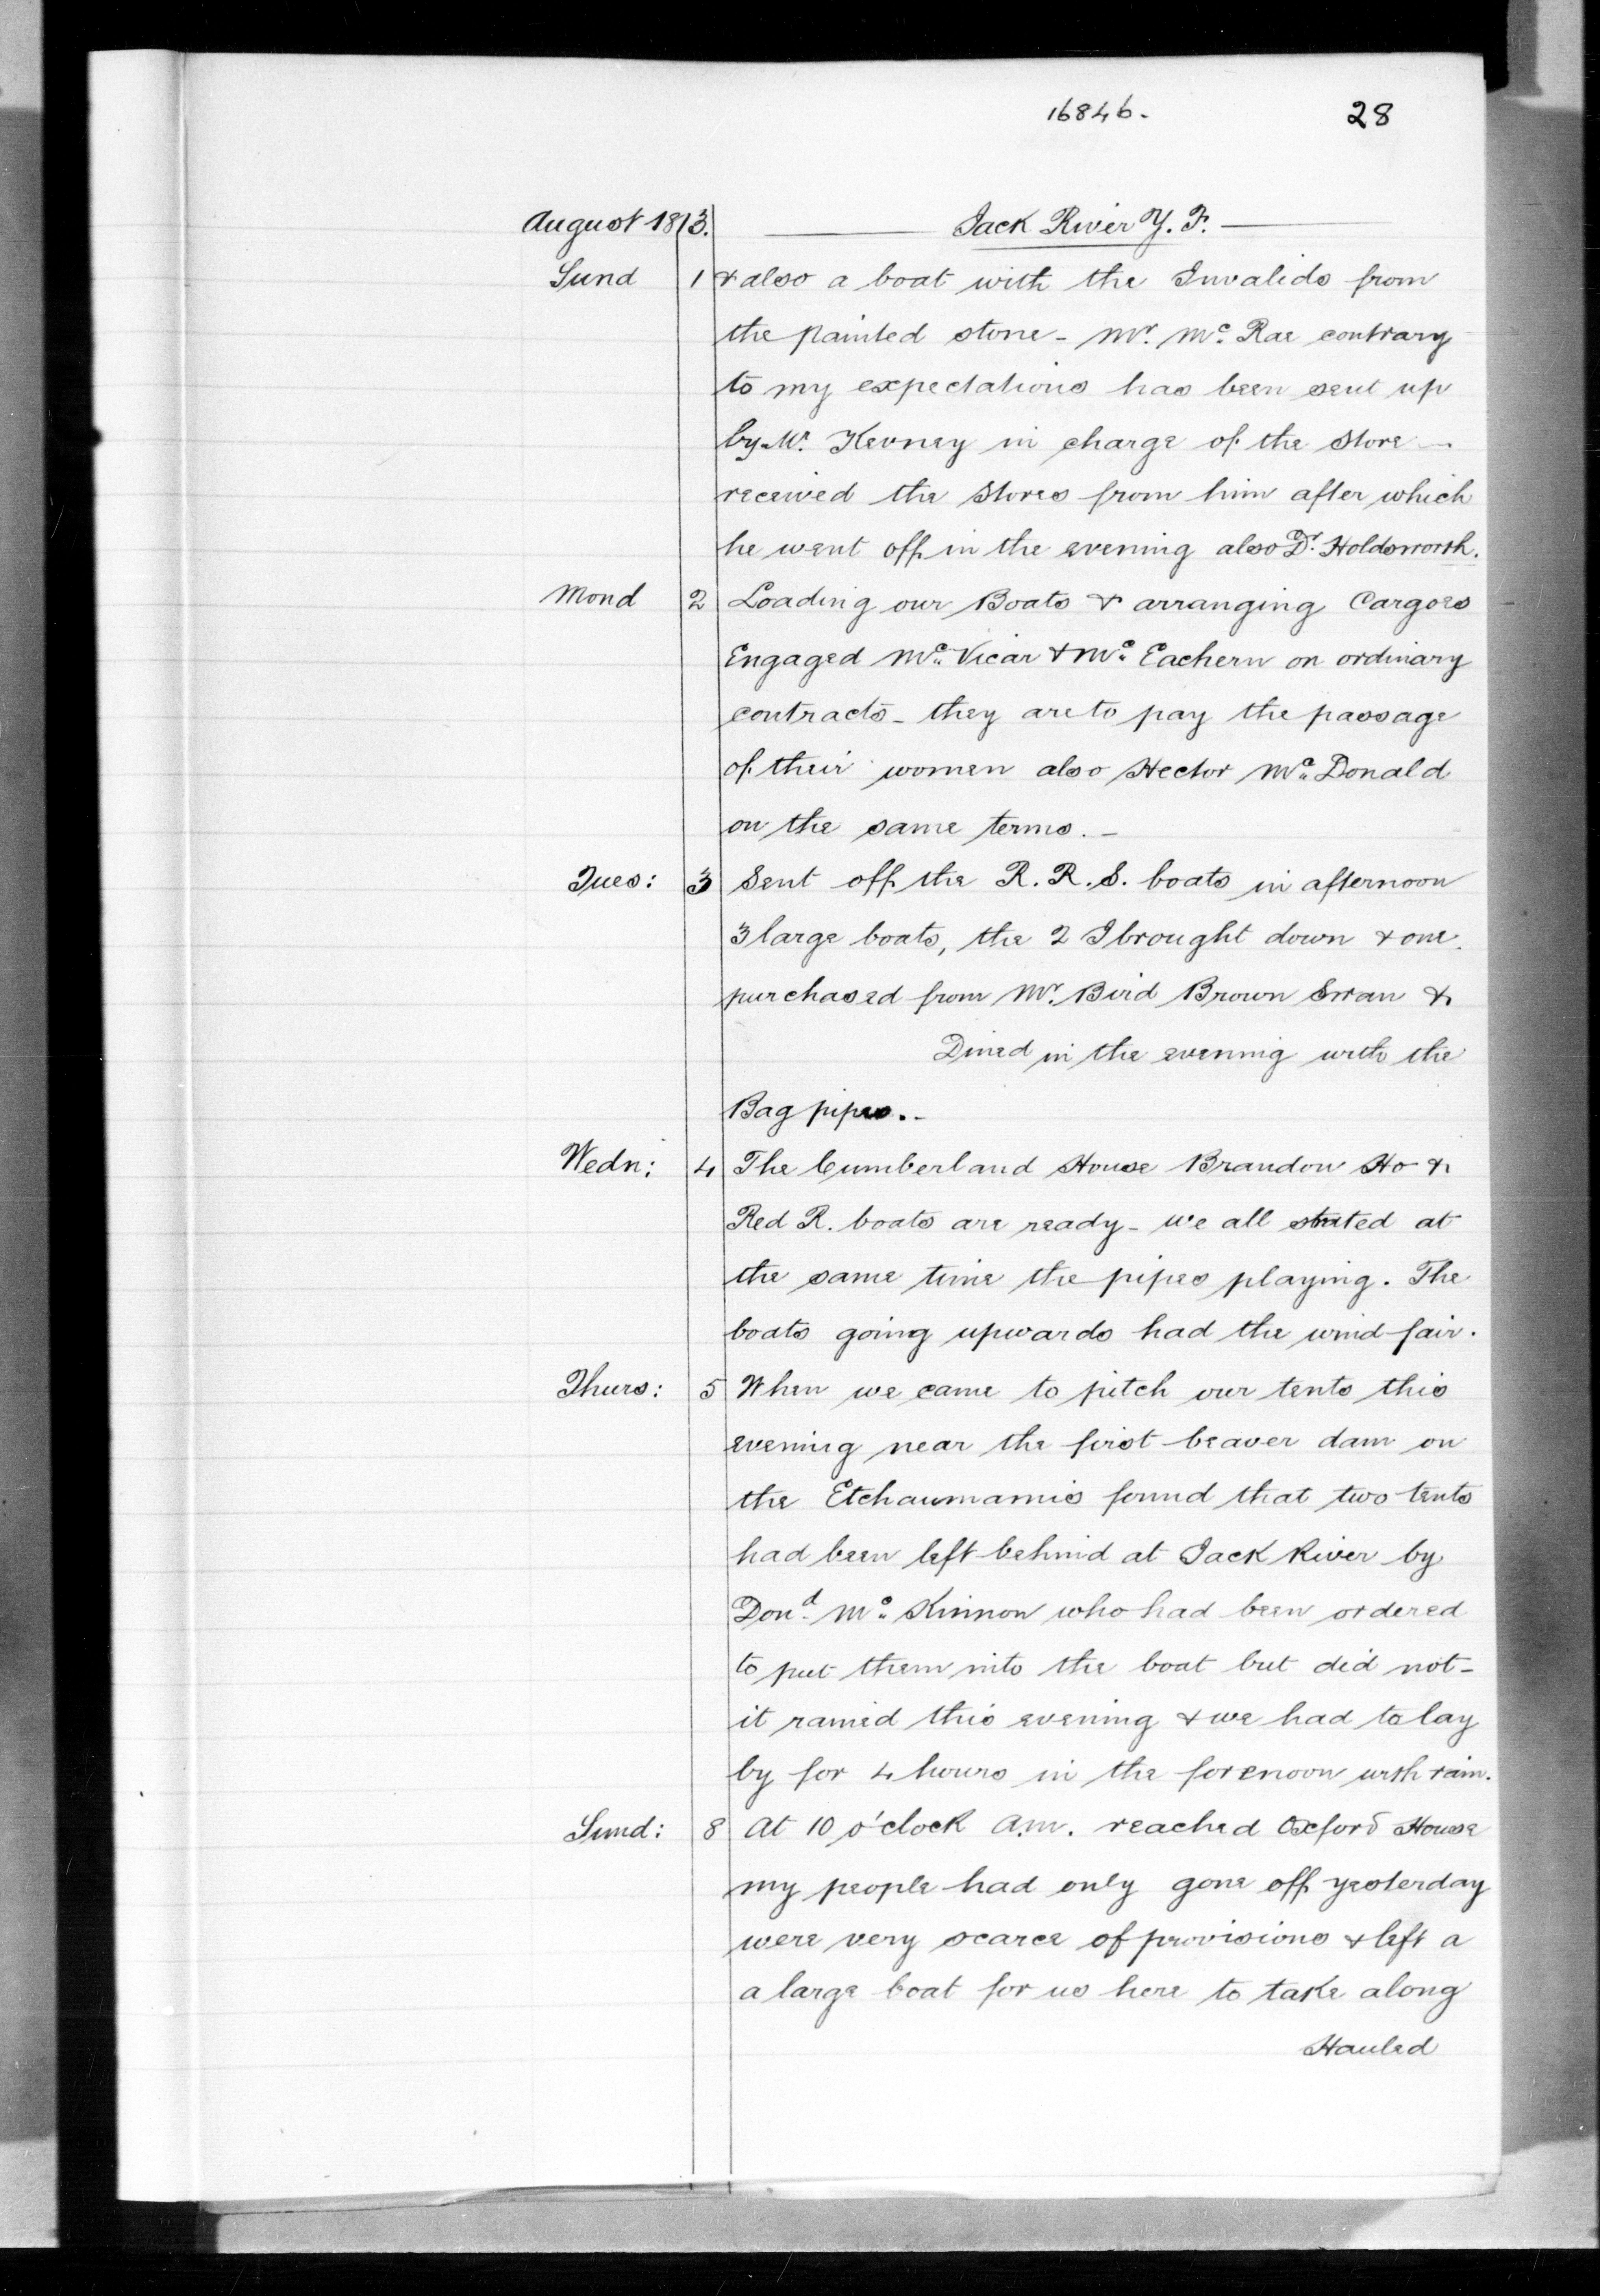 16846. 28
August 1813. Jack River Y. F.
Sund 1 & also a boat with the Invalids from
the painted stone - Mr. Mc. Rae contrary
to my expectations has been sent up
by Mr. Kevney in charge of the store -
received the stores from him after which
he went off in the evening also Dr. Holdsworth.
Mond 2 Loading our Boats & arranging Cargoes
Engaged Mc. Vicar & Mc. Eachern on ordinary
contracts - they are to pay the passage
of their women also Hector Mc. Donald
on the same terms. -
Tues: 3 Sent off the R. R. S. boats in afternoon
3 large boats, the 2 I brought down & one
purchased from Mr. Bird Brown Swan &
Dined in the evening with the
Bag pipes. -
Wedn: 4 The Cumberland House Brandon Ho &
Red R. boats are ready - we all stated at
the same time the pipes playing. The
boats going upwards had the wind fair.
Thurs: 5 When we came to pitch our tents this
evening near the first beaver dam on
the Etchaumamis found that two tents
had been left behind at Jack River by
Dond. Mc. Kinnon who had been ordered
to put them into the boat but did not -
it rained this evening & we had to lay
by for 4 hours in the forenoon with rain.
Sund: 8 At 10 o'clock A.m. reached Oxford House
my people had only gone off yesterday
were very scarce of provisions & left a
a large boat for us here to take along
Hauled